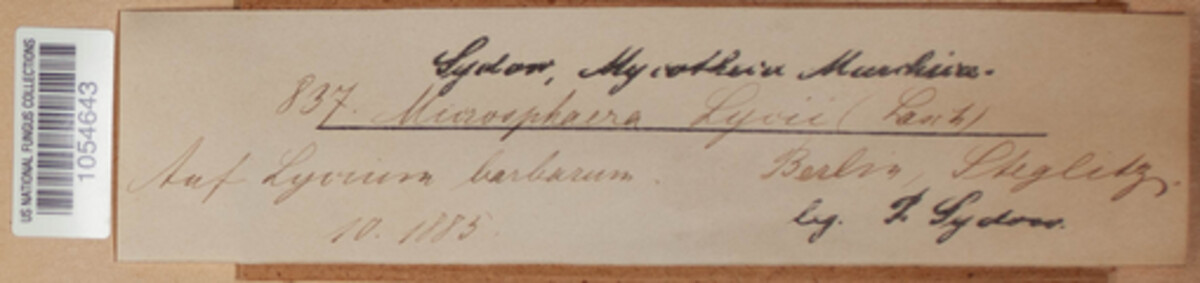 US NATIONAL FUNGUS COLLECTIONS
1054643
Sydow, Mycotheca Marchica.
837. Microsphaera Lycii (Lasch)
Auf Lycium barbarum. Berlin, Steglitz.
10. 1885. leg. P. Sydow.